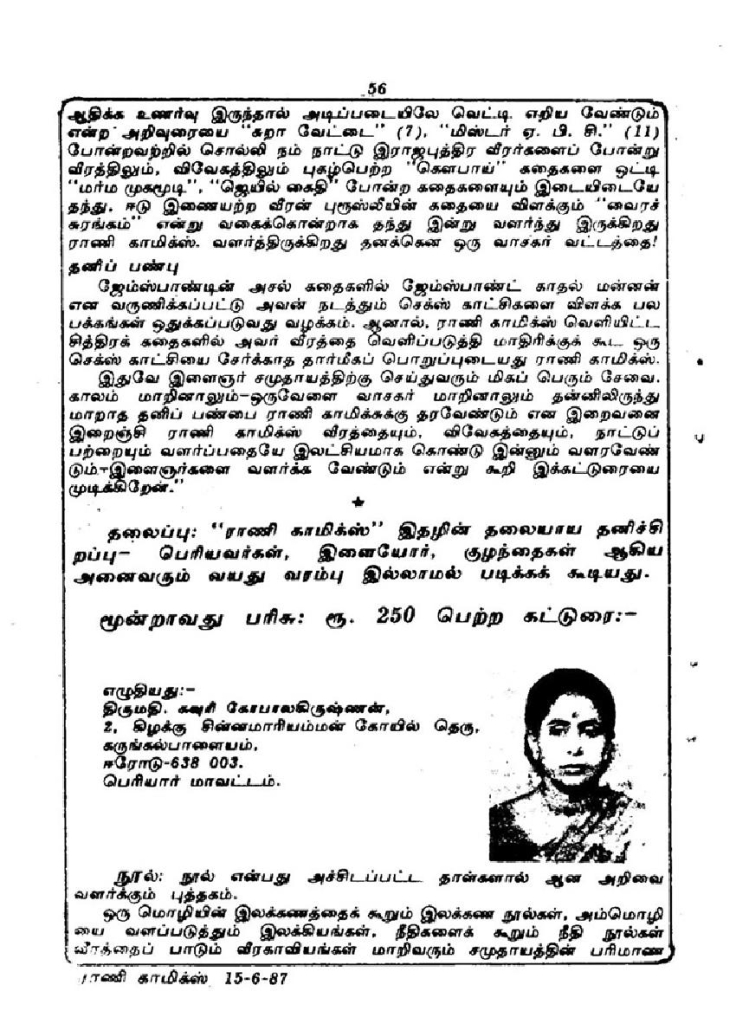 56
ஆதிக்க உணர்வு இருந்தால் அடிப்படையிலே வெட்டி எறிய வேண்டும்
என்ற அறிவுரையை "சுறா வேட்டை" (7), "மிஸ்டர் ஏ. பி. சி." (11)
போன்றவற்றில் சொல்லி நம் நாட்டு இராஜபுத்திர வீரர்களைப் போன்று
வீரத்திலும், விவேகத்திலும் புகழ்பெற்ற "கௌபாய்" கதைகளை ஒட்டி
"மர்ம முகமூடி", "ஜெயில் கைதி" போன்ற கதைகளையும் இடையிடையே
தந்து. ஈடு இணையற்ற வீரன் புரூஸ்லீயின் கதையை விளக்கும் "வைரச்
சுரங்கம்" என்று வகைக்கொன்றாக தந்து இன்று வளர்ந்து இருக்கிறது
ராணி காமிக்ஸ். வளர்த்திருக்கிறது தனக்கென ஒரு வாசகர் வட்டத்தை!
தனிப் பண்பு
ஜேம்ஸ்பாண்டின் அசல் கதைகளில் ஜேம்ஸ்பாண்ட் காதல் மன்னன்
என வருணிக்கப்பட்டு அவன் நடத்தும் செக்ஸ் காட்சிகளை விளக்க பல
பக்கங்கள் ஒதுக்கப்படுவது வழக்கம். ஆனால், ராணி காமிக்ஸ் வெளியிட்ட
சித்திரக் கதைகளில் அவர் வீரத்தை வெளிப்படுத்தி மாதிரிக்குக் கூட ஒரு
செக்ஸ் காட்சியை சேர்க்காத தார்மீகப் பொறுப்புடையது ராணி காமிக்ஸ்.
இதுவே இளைஞர் சமுதாயத்திற்கு செய்துவரும் மிகப் பெரும் சேவை.
காலம் மாறினாலும்-ஒருவேளை வாசகர் மாறினாலும் தன்னிலிருந்து
மாறாத தனிப் பண்பை ராணி காமிக்சுக்கு தரவேண்டும் என இறைவனை
இறைஞ்சி ராணி காமிக்ஸ் வீரத்தையும், விவேகத்தையும், நாட்டுப்
பற்றையும் வளர்ப்பதையே இலட்சியமாக கொண்டு இன்னும் வளரவேண்
டும்-இளைஞர்களை வளர்க்க வேண்டும் என்று கூறி இக்கட்டுரையை
முடிக்கிறேன்."
தலைப்பு: "ராணி காமிக்ஸ்" இதழின் தலையாய தனிச்சி
றப்பு- பெரியவர்கள், இளையோர், குழந்தைகள் ஆகிய
அனைவரும் வயது வரம்பு இல்லாமல் படிக்கக் கூடியது.
மூன்றாவது பரிசு: ரூ. 250 பெற்ற கட்டுரை:-
எழுதியது:-
திருமதி. கவுரி கோபாலகிருஷ்ணன்,
2, கிழக்கு சின்னமாரியம்மன் கோயில் தெரு,
கருங்கல்பாளையம்,
ஈரோடு-638 003.
பெரியார் மாவட்டம்.
நூல்: நூல் என்பது அச்சிடப்பட்ட தாள்களால் ஆன அறிவை
வளர்க்கும் புத்தகம்.
ஒரு மொழியின் இலக்கணத்தைக் கூறும் இலக்கண நூல்கள், அம்மொழி
யை வளப்படுத்தும் இலக்கியங்கள், நீதிகளைக் கூறும் நீதி நூல்கள்
வீரத்தைப் பாடும் வீரகாவியங்கள் மாறிவரும் சமுதாயத்தின் பரிமாண
ராணி காமிக்ஸ் 15-6-87